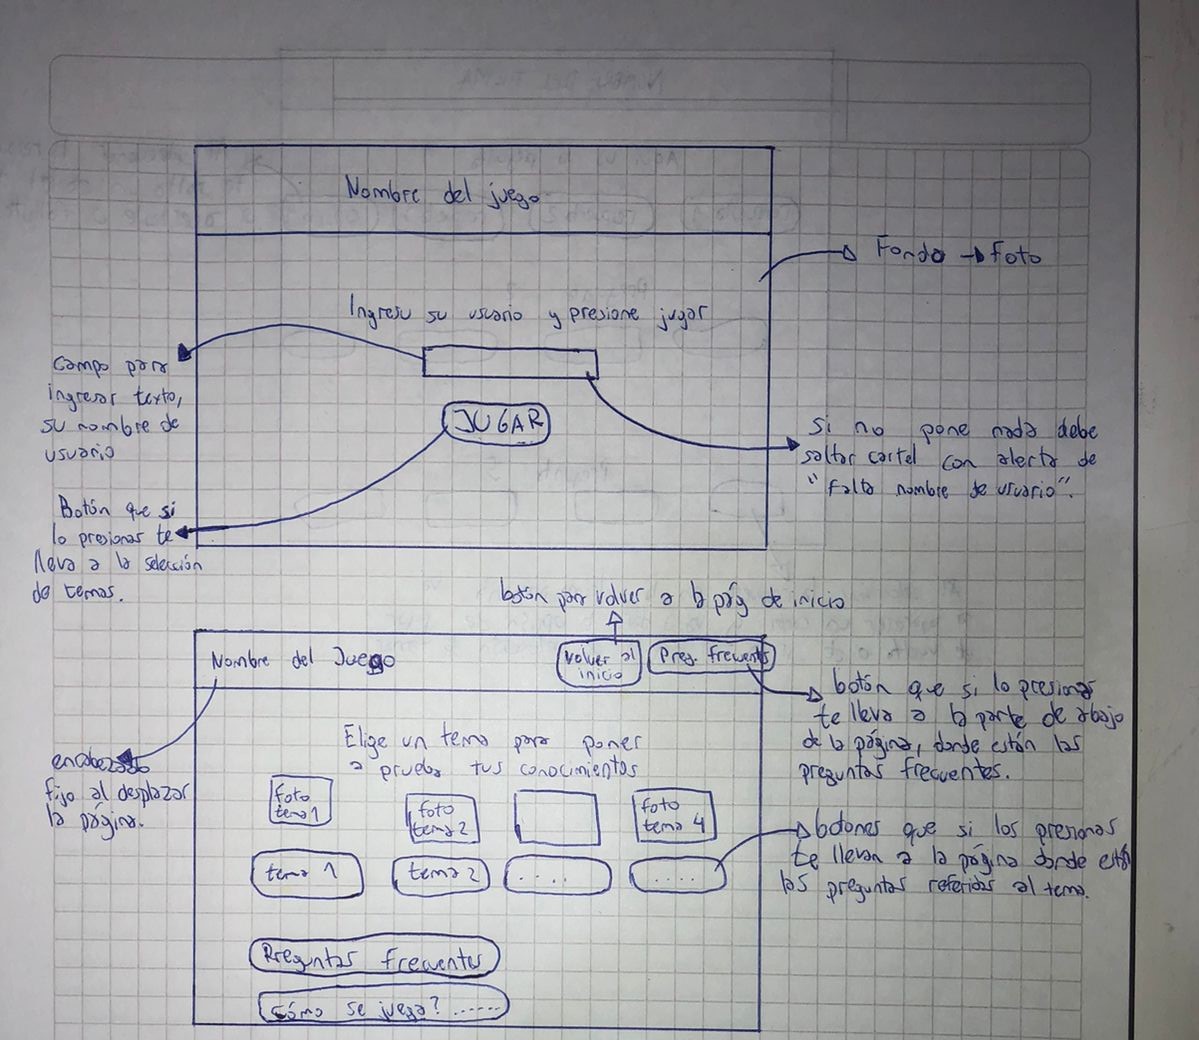 Nombre del juego
Fondo → foto
Ingrese su usuario y presione jugar
Campo para
ingresar texto,
su nombre de
usuario
JUGAR
Si no pone nada debe
saltar cartel con alerta de
"falta nombre de usuario".
Botón que si
lo presionas te
lleva a la selección
de temas.
botón para volver a la pág de inicio
Nombre del Juego
Volver al
inicio
Preg. frecuentes
botón que si lo presionas
te lleva a la parte de abajo
de la página, donde están las
preguntas frecuentes.
encabezado
fijo al desplazar
la página.
Elige un tema para poner
a prueba tus conocimientos
foto
tema 1
foto
tema 2
foto
tema 4
tema 1
tema 2
....
....
botones que si los presionas
te llevan a la página donde están
las preguntas referidas al tema.
Preguntas frecuentes
Cómo se juega? ......